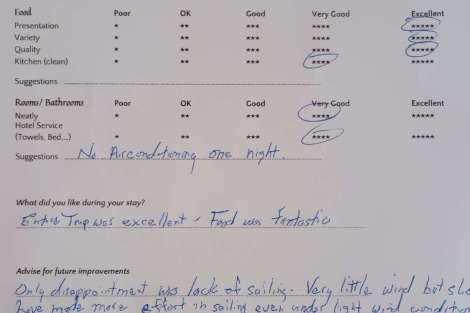 Food Poor OK Good Very Good Excellent
Presentation * ** *** **** *****
Variety * ** *** **** *****
Quality * ** *** **** *****
Kitchen (clean) * ** *** **** *****
Suggestions
Rooms/ Bathrooms Poor OK Good Very Good Excellent
Neatly * ** *** **** *****
Hotel Service
(Towels, Bed,...) * ** *** **** *****
Suggestions No Airconditioning one night.
What did you like during your stay?
Entire Trip was excellent - Food was fantastic
Advise for future improvements
Only disappointment was lack of sailing. Very little wind but sho
have made more effort in sailing even under light wind condition